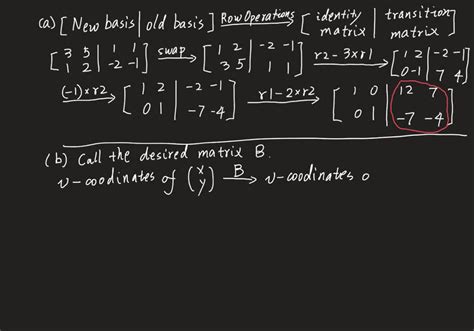 (a) [New basis | old basis] Row Operations → [identity matrix | transition matrix]
[3 5 | 1 1; 1 2 | -2 -1] swap → [1 2 | -2 -1; 3 5 | 1 1] r2 - 3×r1 → [1 2 | -2 -1; 0 -1 | 7 4]
(-1)×r2 → [1 2 | -2 -1; 0 1 | -7 -4] r1 - 2×r2 → [1 0 | 12 7; 0 1 | -7 -4]
(b) Call the desired matrix B.
v-coodinates of (x y) B → v-coodinates o